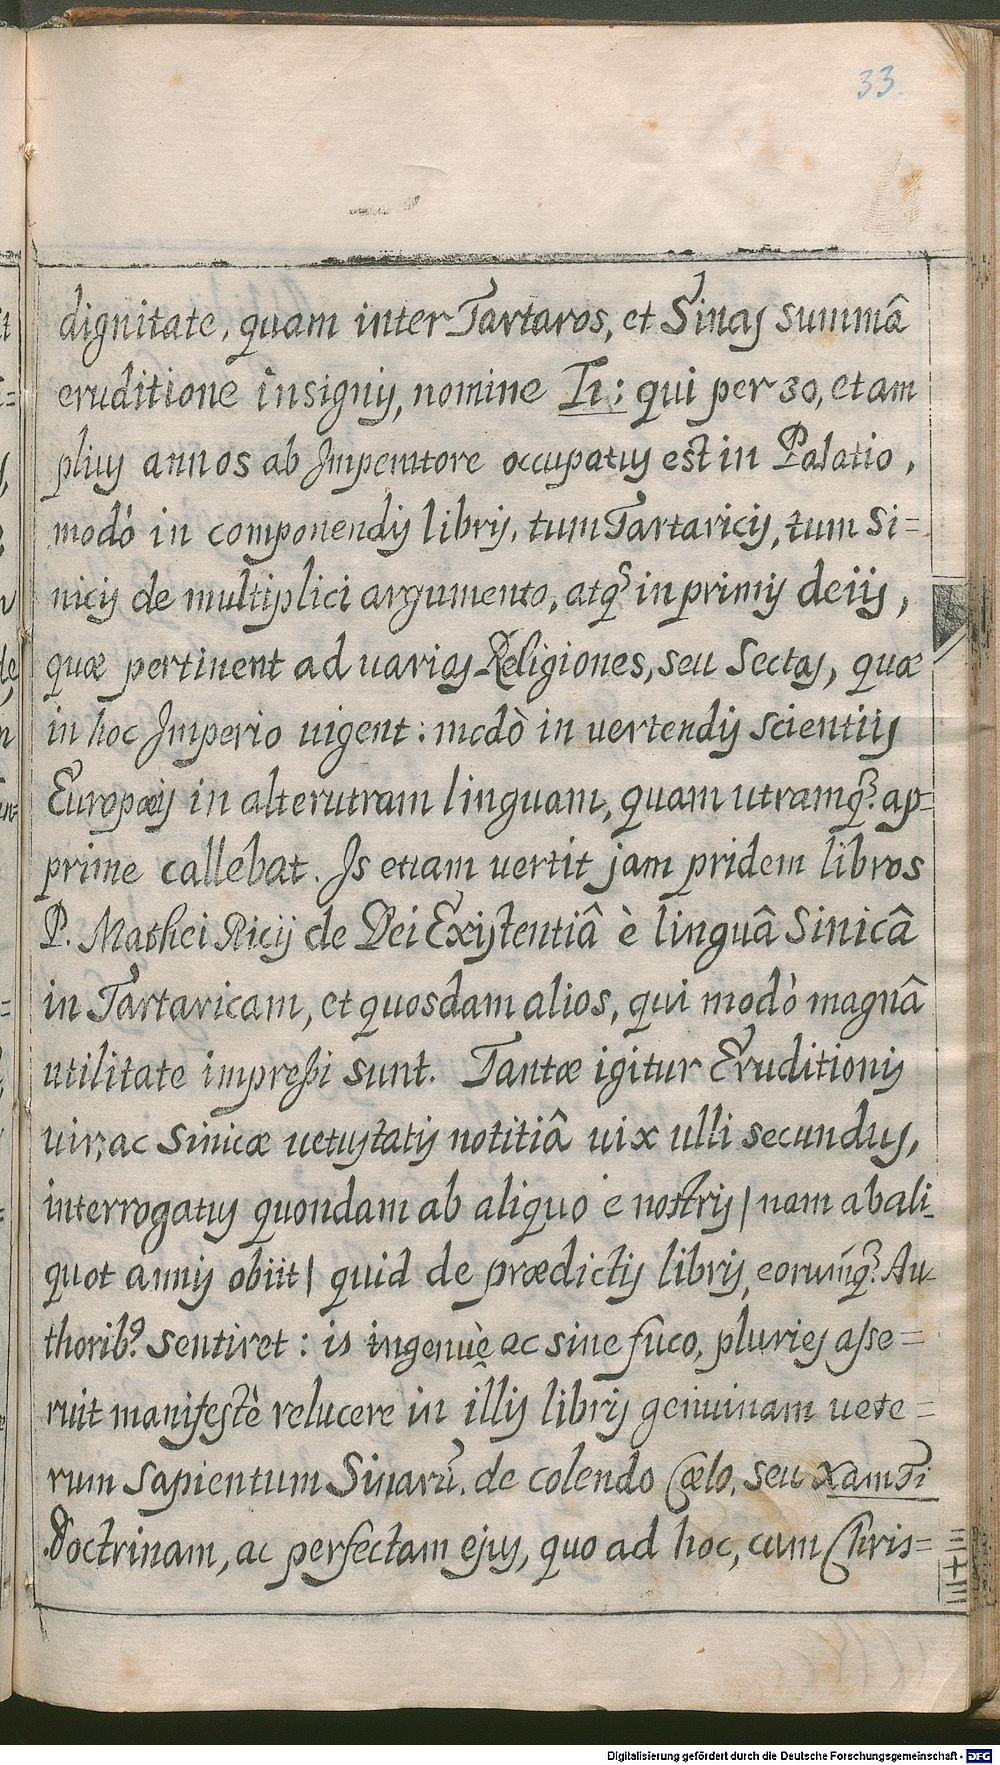 33.
dignitate, quam inter Tartaros, et Sinas summâ
eruditione insignis, nomine Ti: qui per 30, et am
plius annos ab Imperatore occupatus est in Palatio,
modò in componendis libris, tum Tartaricis, tum Si=
nicis de multiplici argumento, atq3 in primis de iis,
quæ pertinent ad varias Religiones, seu Sectas, quæ
in hoc Imperio vigent: modò in vertendis scientiis
Europæis in alterutram linguam, quam utramq3 ap=
prime callebat. Is etiam vertit jam pridem libros
P. Mathei Ricij de Dei Existentiâ è linguâ Sinicâ
in Tartaricam, et quosdam alios, qui modò magnâ
utilitate impreßi sunt. Tantæ igitur Eruditionis
vir, ac Sinicæ vetustatis notitiâ vix ulli secundus,
interrogatus quondam ab aliquo è nostris | nam ab ali
quot annis obiit | quid de prædictis libris, eorumq3 Au-
thorib9 sentiret: is ingenuè ac sine fuco, pluries asse=
ruit manifestè relucere in illis libris genuinam vete=
rum sapientum Sinarū, de colendo Cælo, seu Xam Ti
Doctrinam, ac perfectam ejus, quo ad hoc, cum Chris=
三十三
Digitalisierung gefördert durch die Deutsche Forschungsgemeinschaft - DFG